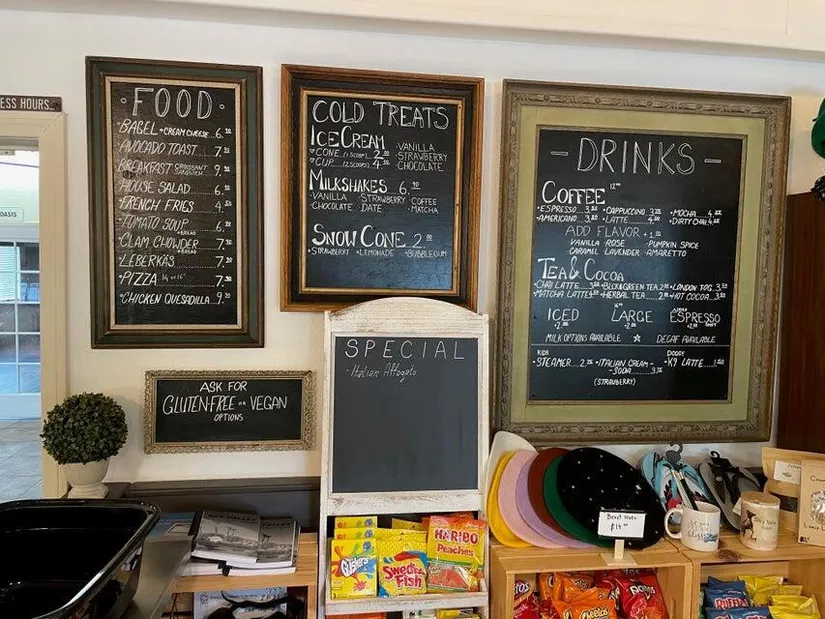 ESS HOURS...
OASIS
·FOOD·
·BAGEL + CREAM CHEESE 6.
·AVOCADO TOAST 7.
·BREAKFAST CROISSANT SANDWICH 9.
·HOUSE SALAD 6.
·FRENCH FRIES 4.
·TOMATO SOUP 6.
·CLAM CHOWDER 7.
·LEBERKÄS 7.
·PIZZA 7.
·CHICKEN QUESADILLA 9.
ASK FOR
GLUTEN-FREE OR VEGAN
OPTIONS
COLD TREATS
ICE CREAM
CONE (1 SCOOP) 2.
CUP (2 SCOOPS) 4.
·VANILLA
·STRAWBERRY
·CHOCOLATE
MILKSHAKES 6.
·VANILLA STRAWBERRY ·COFFEE
CHOCOLATE DATE ·MATCHA
SNOW CONE 2.
·STRAWBERRY ·LEMONADE ·BUBBLEGUM
SPECIAL
-Italian Affogato
-DRINKS-
COFFEE
·ESPRESSO 3. ·CAPPUCCINO 3. ·MOCHA 4.
·AMERICANO 3. ·LATTE 4. ·DIRTY CHAI 4.
ADD FLAVOR +1.
VANILLA ROSE PUMPKIN SPICE
CARAMEL LAVENDER ·AMARETTO
TEA & COCOA
·CHAI LATTE 3. ·BLCK&GREEN TEA 2. ·LONDON FOG 3.
·MATCHA LATTE 4. ·HERBAL TEA 2. ·HOT COCOA 3.
ICED LARGE ESPRESSO
MILK OPTIONS AVAILABLE ☆ DECAF AVAILABLE
KIDS DOGGY
·STEAMER 2. ·ITALIAN CREAM ·K9 LATTE 1.
SODA 3.
(STRAWBERRY)
Beret Note
$19
Gushers
Swedish Fish
HARIBO
Peaches
Cheetos
Doritos
Ruffles